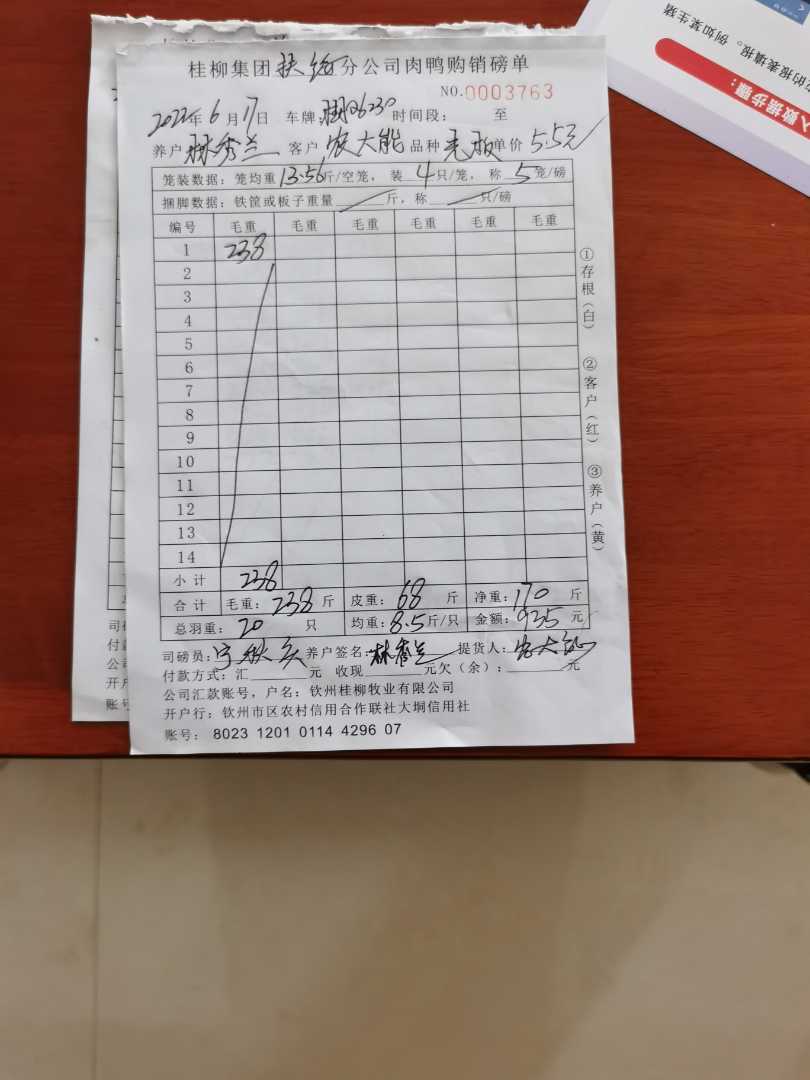 桂柳集团扶绥分公司肉鸭购销磅单
NO.0003763
2022年6月17日 车牌: 时间段: 至
养户林秀兰 客户农大能 品种 单价5.5元
笼装数据:笼均重13.56斤/空笼,装4只/笼,称5笼/磅
捆脚数据:铁筐或板子重量 斤,称 只/磅
编号 毛重 毛重 毛重 毛重 毛重 毛重
1 238
2
3
4
5
6
7
8
9
10
11
12
13
14
小计 238
合计 毛重:238斤 皮重:68斤 净重:170斤
总羽重:20只 均重:8.5斤/只 金额:935元
司磅员: 养户签名:林秀兰 提货人:农大能
付款方式:汇 元 收现 元欠(余): 元
公司汇款账号,户名:钦州桂柳牧业有限公司
开户行:钦州市区农村信用合作联社大垌信用社
账号: 8023 1201 0114 4296 07
①存根(白)
②客户(红)
③养户(黄)
司磅
付款
公司
开户
账号
的报表填报。例如某生猪
入数据步骤: